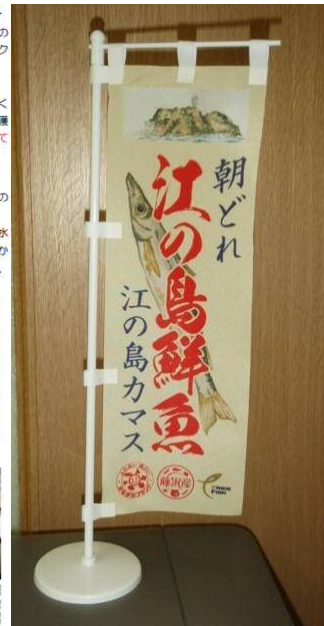 朝どれ
江の島鮮魚
江の島カマス
藤沢産